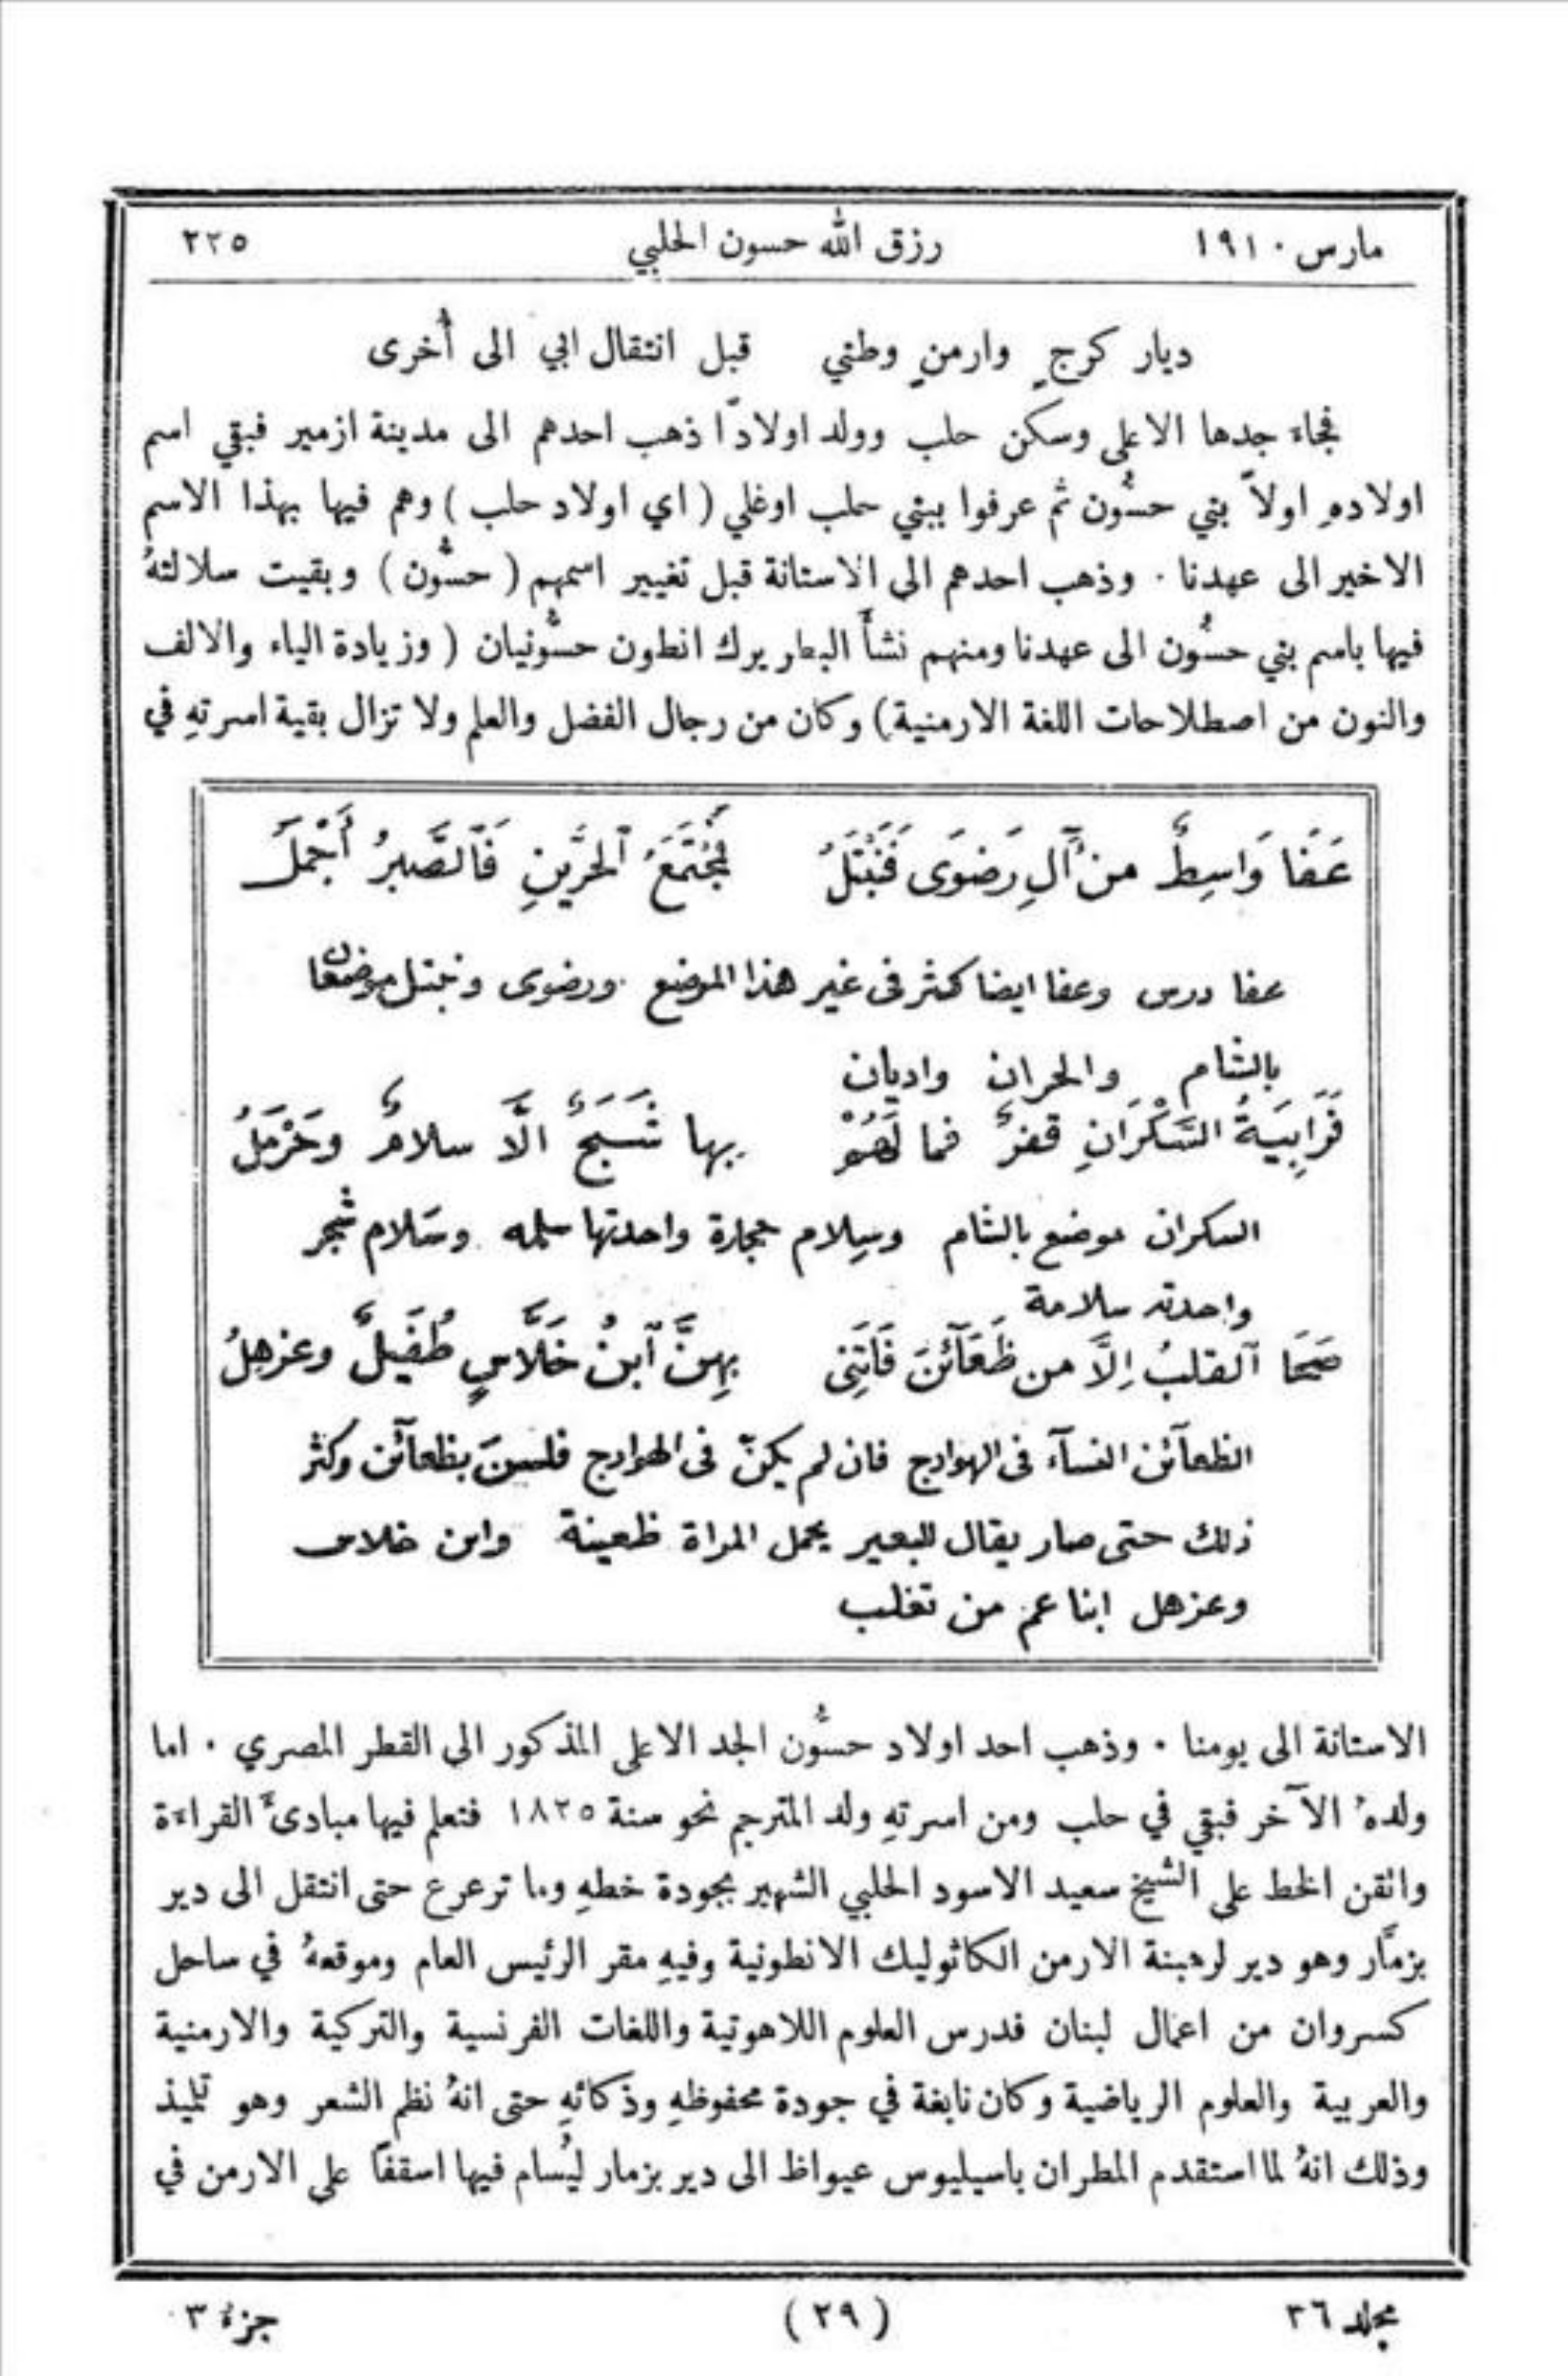 مارس ١٩١٠ رزق الله حسون الحلبي ٢٢٥
ديار كرجٍ وارمنٍ وطني قبل انتقال ابي الى أُخرى
فجاء جدها الاعلى وسكن حلب وولد اولادًا ذهب احدهم الى مدينة ازمير فبقي اسم
اولادهِ اولاً بني حسُّون ثم عرفوا ببني حلب اوغلي ( اي اولاد حلب ) وهم فيها بهذا الاسم
الاخير الى عهدنا ٠ وذهب احدهم الى الاستانة قبل تغيير اسمهم ( حسُّون ) وبقيت سلالتهُ
فيها باسم بني حسُّون الى عهدنا ومنهم نشأَ البطريرك انطون حسُّونيان ( وزيادة الياء والالف
والنون من اصطلاحات اللغة الارمنية) وكان من رجال الفضل والعلم ولا تزال بقية اسرتهِ في
عَفَا وَاسِطٌ من آلِ رَضوَى فَنَبْتَلُ فَمُجْتَمَعُ ٱلحُرَّينِ فَٱلصَّبرُ أَجْمَلُ
عفا درس وعفا ايضا كثر فى غير هذا الموضع ورضوى ونبتل موضعان
بالشام والحران واديان
فَرَابِيَةُ السَّكْرَانِ قفرٌ فما لَهُمْ بها شَبَحٌ الَّا سلامٌ وحَرْمَلُ
السكران موضع بالشام وسِلام حجارة واحدتها سلمه وسَلام شجر
واحدته سلامة
صَحَا ٱلقلبُ إلَّا من ظَعَآئنَ فَاتَنِى بِهِنَّ ٱبنُ خَلَّاسٍ طُفَيلٌ وعزهلُ
الظعآئن النسآء فى الهوادج فان لم يكنّ فى الهوادج فلسنَ بظعآئن وكثر
ذلك حتى صار يقال للبعير يحمل المراة ظعينة وابن خلاس
وعزهل ابنا عم من تغلب
الاستانة الى يومنا ٠ وذهب احد اولاد حسُّون الجد الاعلى المذكور الى القطر المصري ٠ اما
ولدهُ الآخر فبقي في حلب ومن اسرتهِ ولد المترجم نحو سنة ١٨٢٥ فتعلم فيها مبادئَ القراءة
واتقن الخط على الشيخ سعيد الاسود الحلبي الشهير بجودة خطهِ وما ترعرع حتى انتقل الى دير
بزمَّار وهو دير لرهبنة الارمن الكاثوليك الانطونية وفيهِ مقر الرئيس العام وموقعهُ في ساحل
كسروان من اعمال لبنان فدرس العلوم اللاهوتية واللغات الفرنسية والتركية والارمنية
والعربية والعلوم الرياضية وكان نابغة في جودة محفوظهِ وذكائهِ حتى انهُ نظم الشعر وهو تلميذ
وذلك انهُ لما استقدم المطران باسيليوس عيواظ الى دير بزمار ليُسام فيها اسقفًا على الارمن في
مجلد ٣٦ (٢٩) جزء ٣